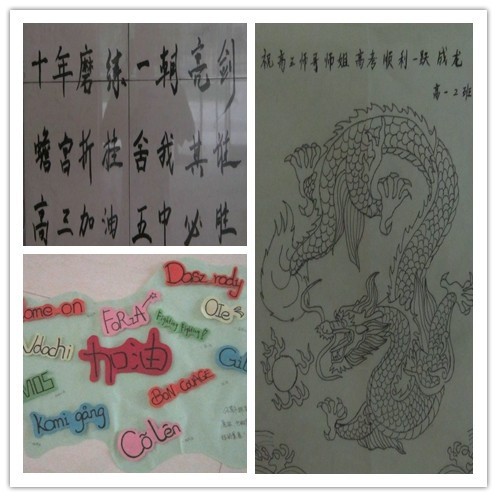 十年磨练一朝亮剑
蟾宫折桂舍我其谁
高三加油五中必胜
祝高三师哥师姐高考顺利一跃成龙
高一2班
Dasz rady
ome-on
FORZA
OlE
Fighting Fighting!
Vdachi
加油
Gut
MOS
BON COURAGE
Kami gâng
Cố lên